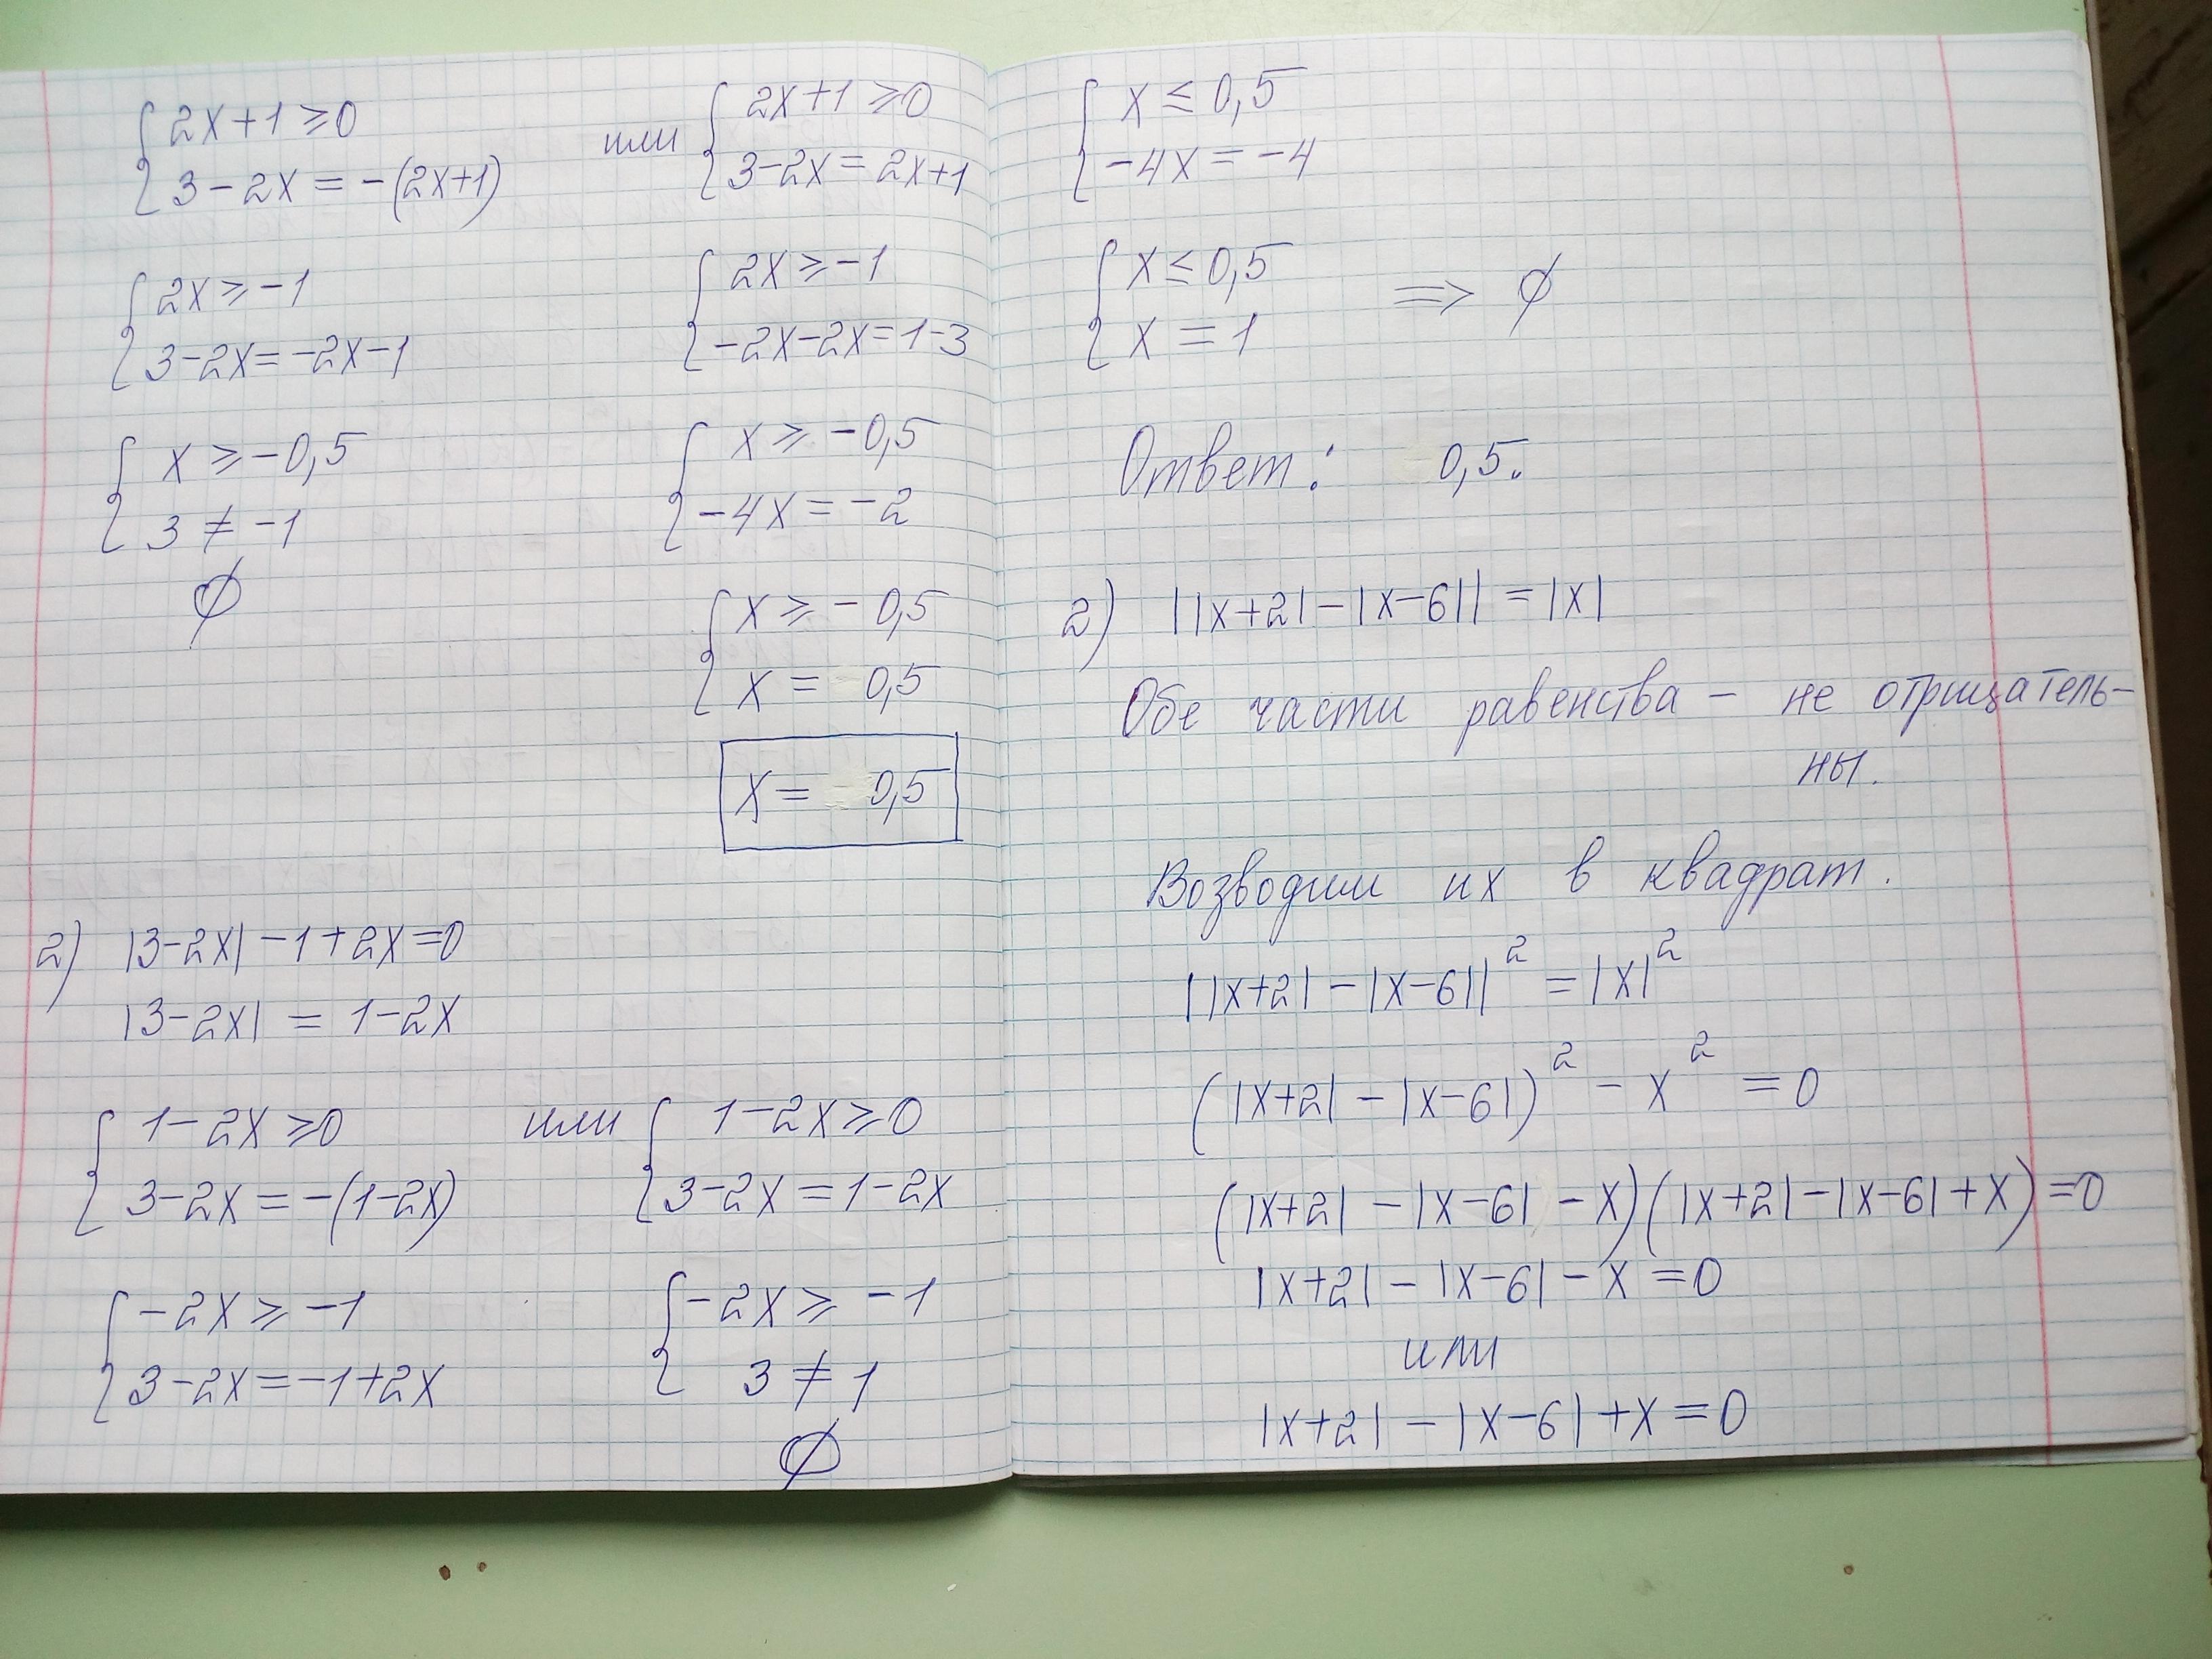 2x+1≥0
3-2x=-(2x+1)
или
2x+1≥0
3-2x=2x+1
2x≥-1
3-2x=-2x-1
2x≥-1
-2x-2x=1-3
x≥-0,5
3≠-1
∅
x≥-0,5
-4x=-2
x≥-0,5
x=0,5
x=0,5
2) |3-2x|-1+2x=0
|3-2x|=1-2x
1-2x≥0
3-2x=-(1-2x)
или
1-2x≥0
3-2x=1-2x
-2x≥-1
3-2x=-1+2x
-2x≥-1
3≠1
∅
x≤0,5
-4x=-4
x≤0,5
x=1
⇒ ∅
Ответ: 0,5.
2) ||x+2|-|x-6||=|x|
Обе части равенства – не отрицатель-
ны.
Возводим их в квадрат.
||x+2|-|x-6||²=|x|²
(|x+2|-|x-6|)²-x²=0
(|x+2|-|x-6|-x)(|x+2|-|x-6|+x)=0
|x+2|-|x-6|-x=0
или
|x+2|-|x-6|+x=0